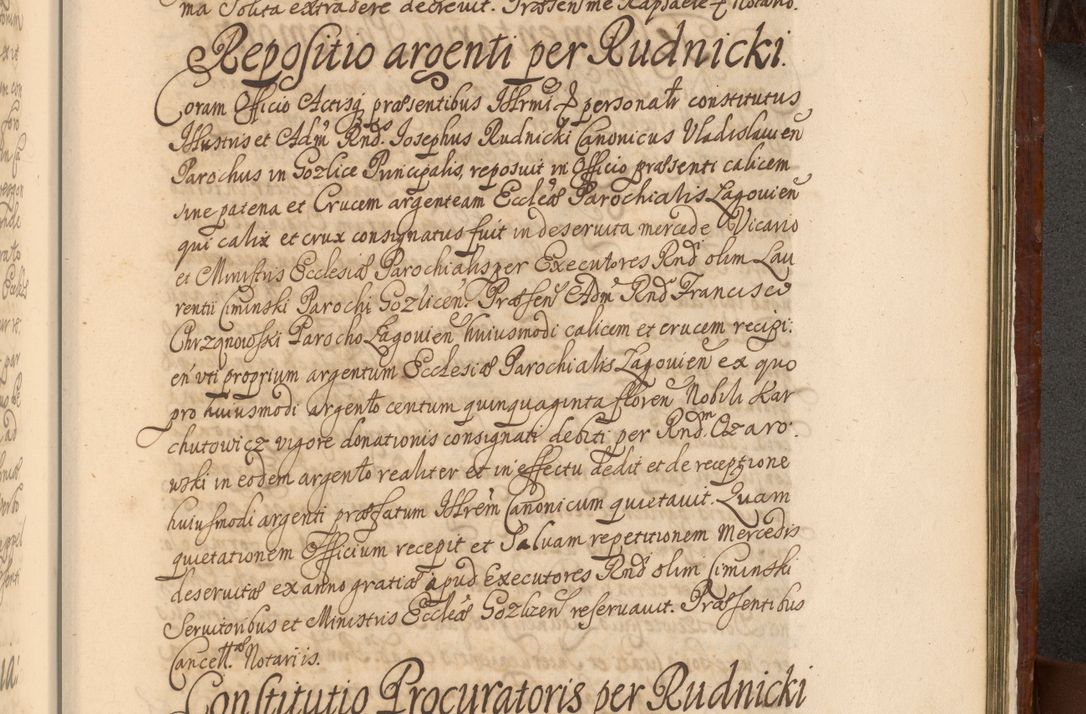 ma Solita extradere decrevit. Præsen me Raphaele ę Notario.
Repositio argenti per Rudnicki.
Coram Officio Actisq præsentibus Illrmi ę personalr constitutus
Illustris et Adm Rnds. Josephus Rudnicki Canonicus Vladislauien
Parochus in Gozlice Principalis, reposuit in Officio præsenti calicem
sine patena et Crucem argenteam Eccleæ Parochialis Lagovien
qui calix et crux consignatus fuit in deservita mercede Vicario
et Ministris Ecclesiæ Parochialis per Executores Rnd olim Lau
rentii Ciminski Parochi Gozlicen. Præsen Adm Rnd Francisco
Chrząnowski Parocho Lagovien huiusmodi calicem et crucem recipi:
en vti proprium argentum Ecclesiæ Parochialis Lagovien ex quo
pro huiusmodi argento centum quinquaginta floren Nobili Kar
chutowicz vigore donationis consignati debiti per Rndm Czaro:
wski in eodem argento realiter et in effectu dedit et de receptione
huiusmodi argenti præfatum Illrem Canonicum quietavit. Quam
quietationem Officium recepit et Salvam repetitionem Mercedis
deservitæ ex anno gratiæ apud Executores Rnd olim Ciminski
Servitoribus et Ministris Eccleæ Gozlizen reservavit. Præsentibus
Cancell. Notariis.
Constitutio Procuratoris per Rudnicki